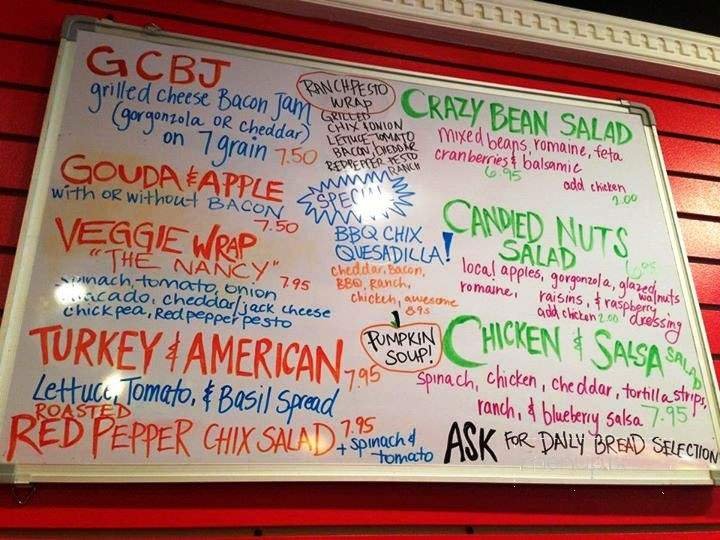 GCBJ
grilled cheese Bacon Jam
(gorgonzola OR cheddar)
on 7 grain 7.50
GOUDA & APPLE
with OR without BACON
7.50
VEGGIE WRAP
"THE NANCY"
spinach, tomato, onion 7.95
avacado, cheddar/jack cheese
chickpea, Red pepper pesto
TURKEY & AMERICAN 7.95
Lettuce, Tomato, & Basil Spread
ROASTED
RED PEPPER CHIX SALAD 7.95
+ spinach &
tomato
RANCH PESTO
WRAP
GRILLED
CHIX & ONION
LETTUCE TOMATO
BACON, CHEDDAR
RED PEPPER PESTO
RANCH
SPECIAL
BBQ CHIX
QUESADILLA!
cheddar, Bacon,
BBQ, Ranch,
chicken, awesome
8.95
PUMPKIN
SOUP!
CRAZY BEAN SALAD
mixed beans, romaine, feta
cranberries & balsamic
6.95
add chicken
2.00
CANDIED NUTS
SALAD
local apples, gorgonzola, glazed walnuts
romaine, raisins, & raspberry dressing
add chicken 2.00
CHICKEN & SALSA SALAD
spinach, chicken, cheddar, tortilla strips,
ranch, & blueberry salsa 7.95
ASK FOR DAILY BREAD SELECTION